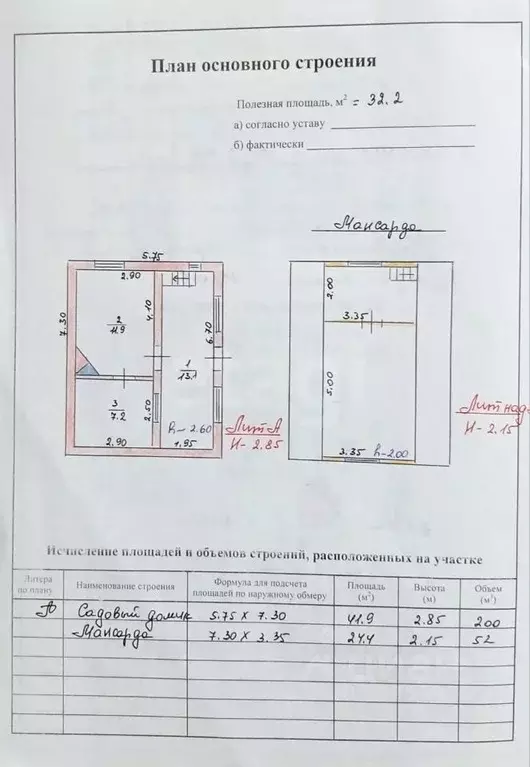 План основного строения
Полезная площадь, м² = 32.2
а) согласно уставу
б) фактически
Мансарда
5.75
2.90
7.30
4.10
2.00
2
11.9
6.70
3.35
1
13.1
5.00
3
7.2
2.50
h-2.60
Лит А
Н-2.85
2.90
1.95
3.35 h-2.00
Лит над
Н-2.15
Исчисление площадей и объемов строений, расположенных на участке
Литера по плану Наименование строения Формула для подсчета площадей по наружному обмеру Площадь (м²) Высота (м) Объем (м³)
А Садовый домик 5.75 x 7.30 41.9 2.85 200
Мансарда 7.30 x 3.35 24.4 2.15 52